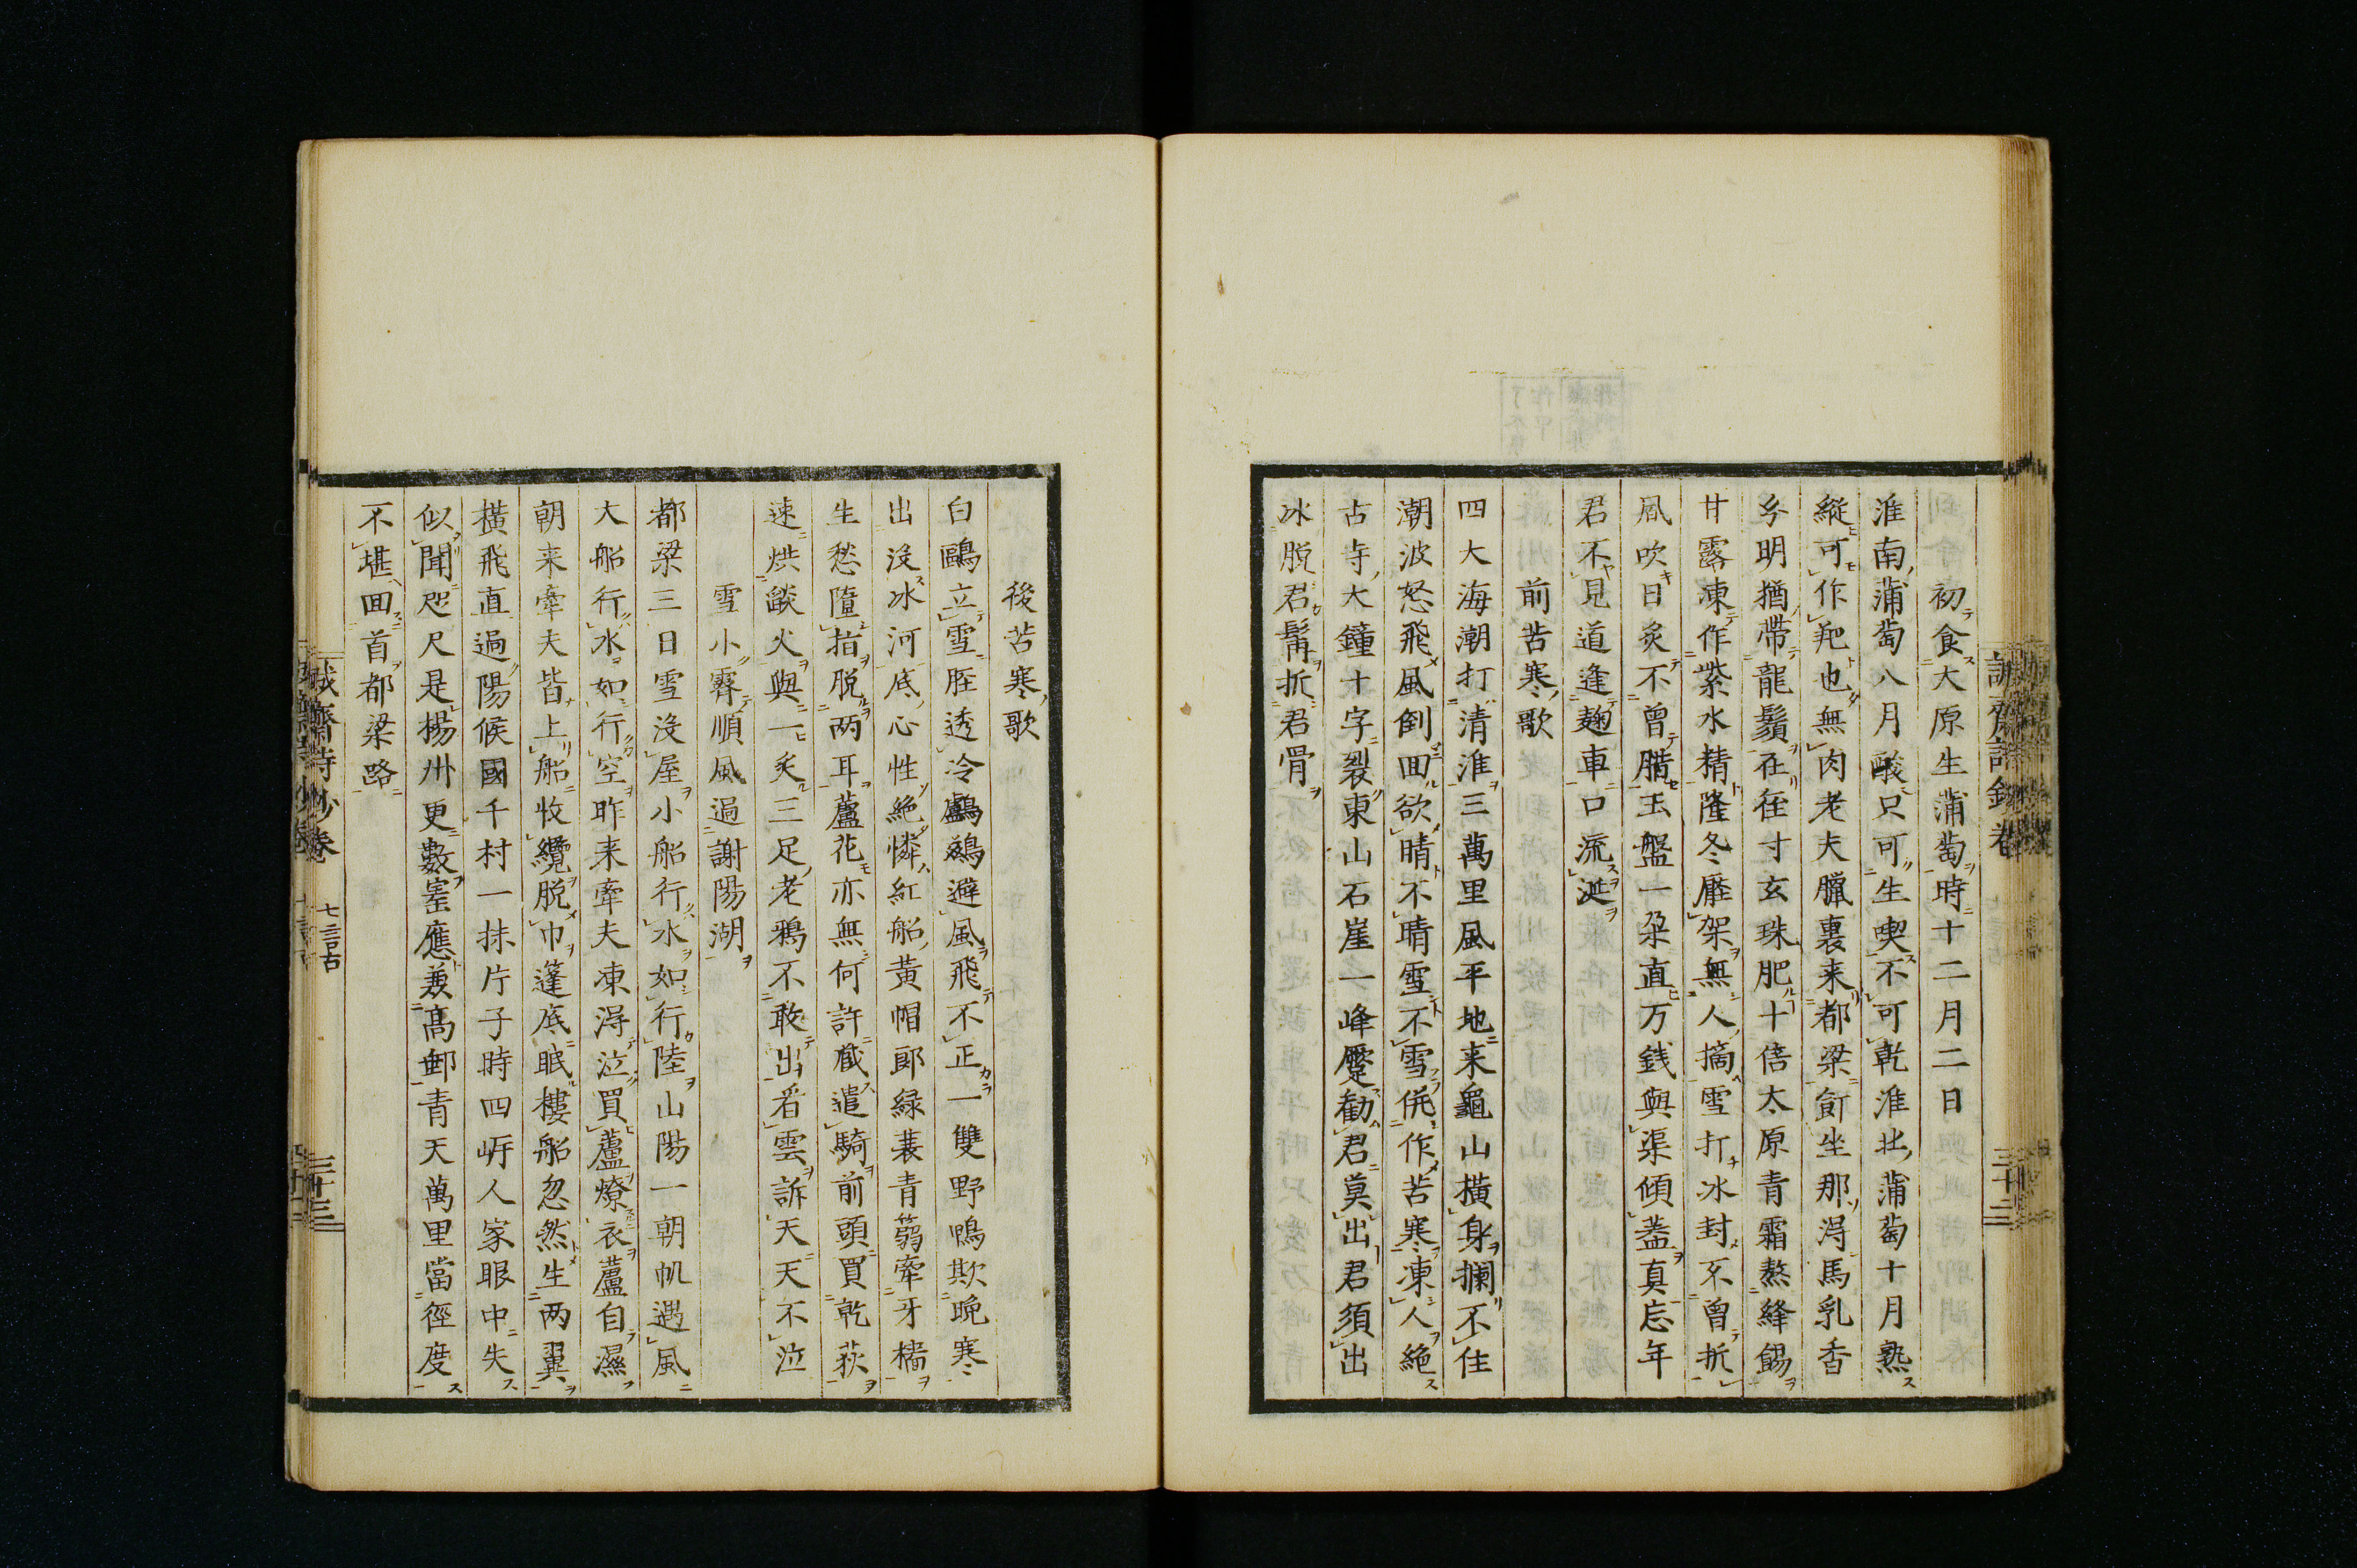 初食大原生蒲萄時十二月二日
淮南蒲萄八月酸只可生喫不可乾淮北蒲萄十月熟
縱可作羓也無肉老夫臘裏来都梁飣坐那淂馬乳香
分明猶帶龍鬚在徑寸玄珠肥十倍太原青霜熬絳餳
甘露凍作紫水精隆冬壓架無人摘雪打冰封不曾折
風吹日炙不曾腊玉盤一朶直万銭與渠傾蓋真忘年
君不見道逢麹車口流涎
前苦寒歌
四大海潮打清淮三萬里風平地来龜山橫身攔不住
潮波怒飛風倒回欲晴不晴雪不雪併作苦寒凍人絶
古寺大鐘十字裂東山石崖一峰壓勸君莫出君須出
冰脱君髯折君骨
後苦寒歌
白鷗立雪脛透冷鸕鷀避風飛不正一雙野鴨欺晩寒
出沒冰河底心性絶憐紅船黃帽郎緑蓑青蒻牽牙檣
生愁墮指脱两耳蘆花亦無何許蔵遣騎前頭買乾荻
速烘燄火與一炙三足老鴉不敢出看雲訴天天不泣
雪小霽順風過謝陽湖
都梁三日雪沒屋小船行水如行陸山陽一朝帆遇風
大船行水如行空昨来牽夫凍淂泣買蘆燎衣蘆自濕
朝来牽夫皆上船牧纜脱巾蓬底眠樓船忽然生两翼
橫飛直過陽候國千村一抹片子時四㟁人家眼中失
似聞咫尺是楊州更數寉應蒹髙郵青天萬里當徑度
不堪回首都梁路
誠齋詩鈔卷
三十二
誠齋詩鈔卷
七言古
三十三